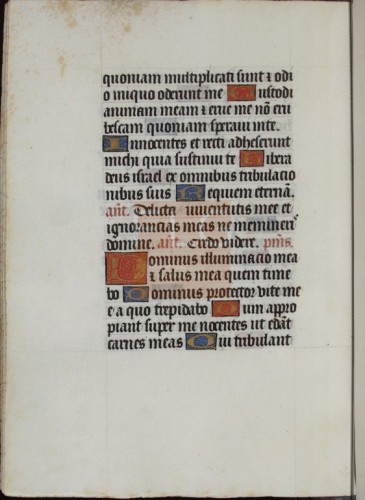 quoniam multiplicati sunt ⁊ odi
o iniquo oderunt me Custodi
animam meam ⁊ erue me nõ eru
bescam quoniam speraui in te.
Innocentes et recti adheserunt
michi quia sustinui te Libera
deus israel ex omnibus tribulacio
nibus suis Requiem eternã.
añt. Delicta iuuentutis mee et
ignorancias meas ne memineris
domine. añt. Credo videre. p̃ms.
Dominus illuminacio mea
⁊ salus mea quem time
bo Dominus protector vite me
e a quo trepidabo Dum appro
piant super me nocentes ut edãt
carnes meas Qui tribulant